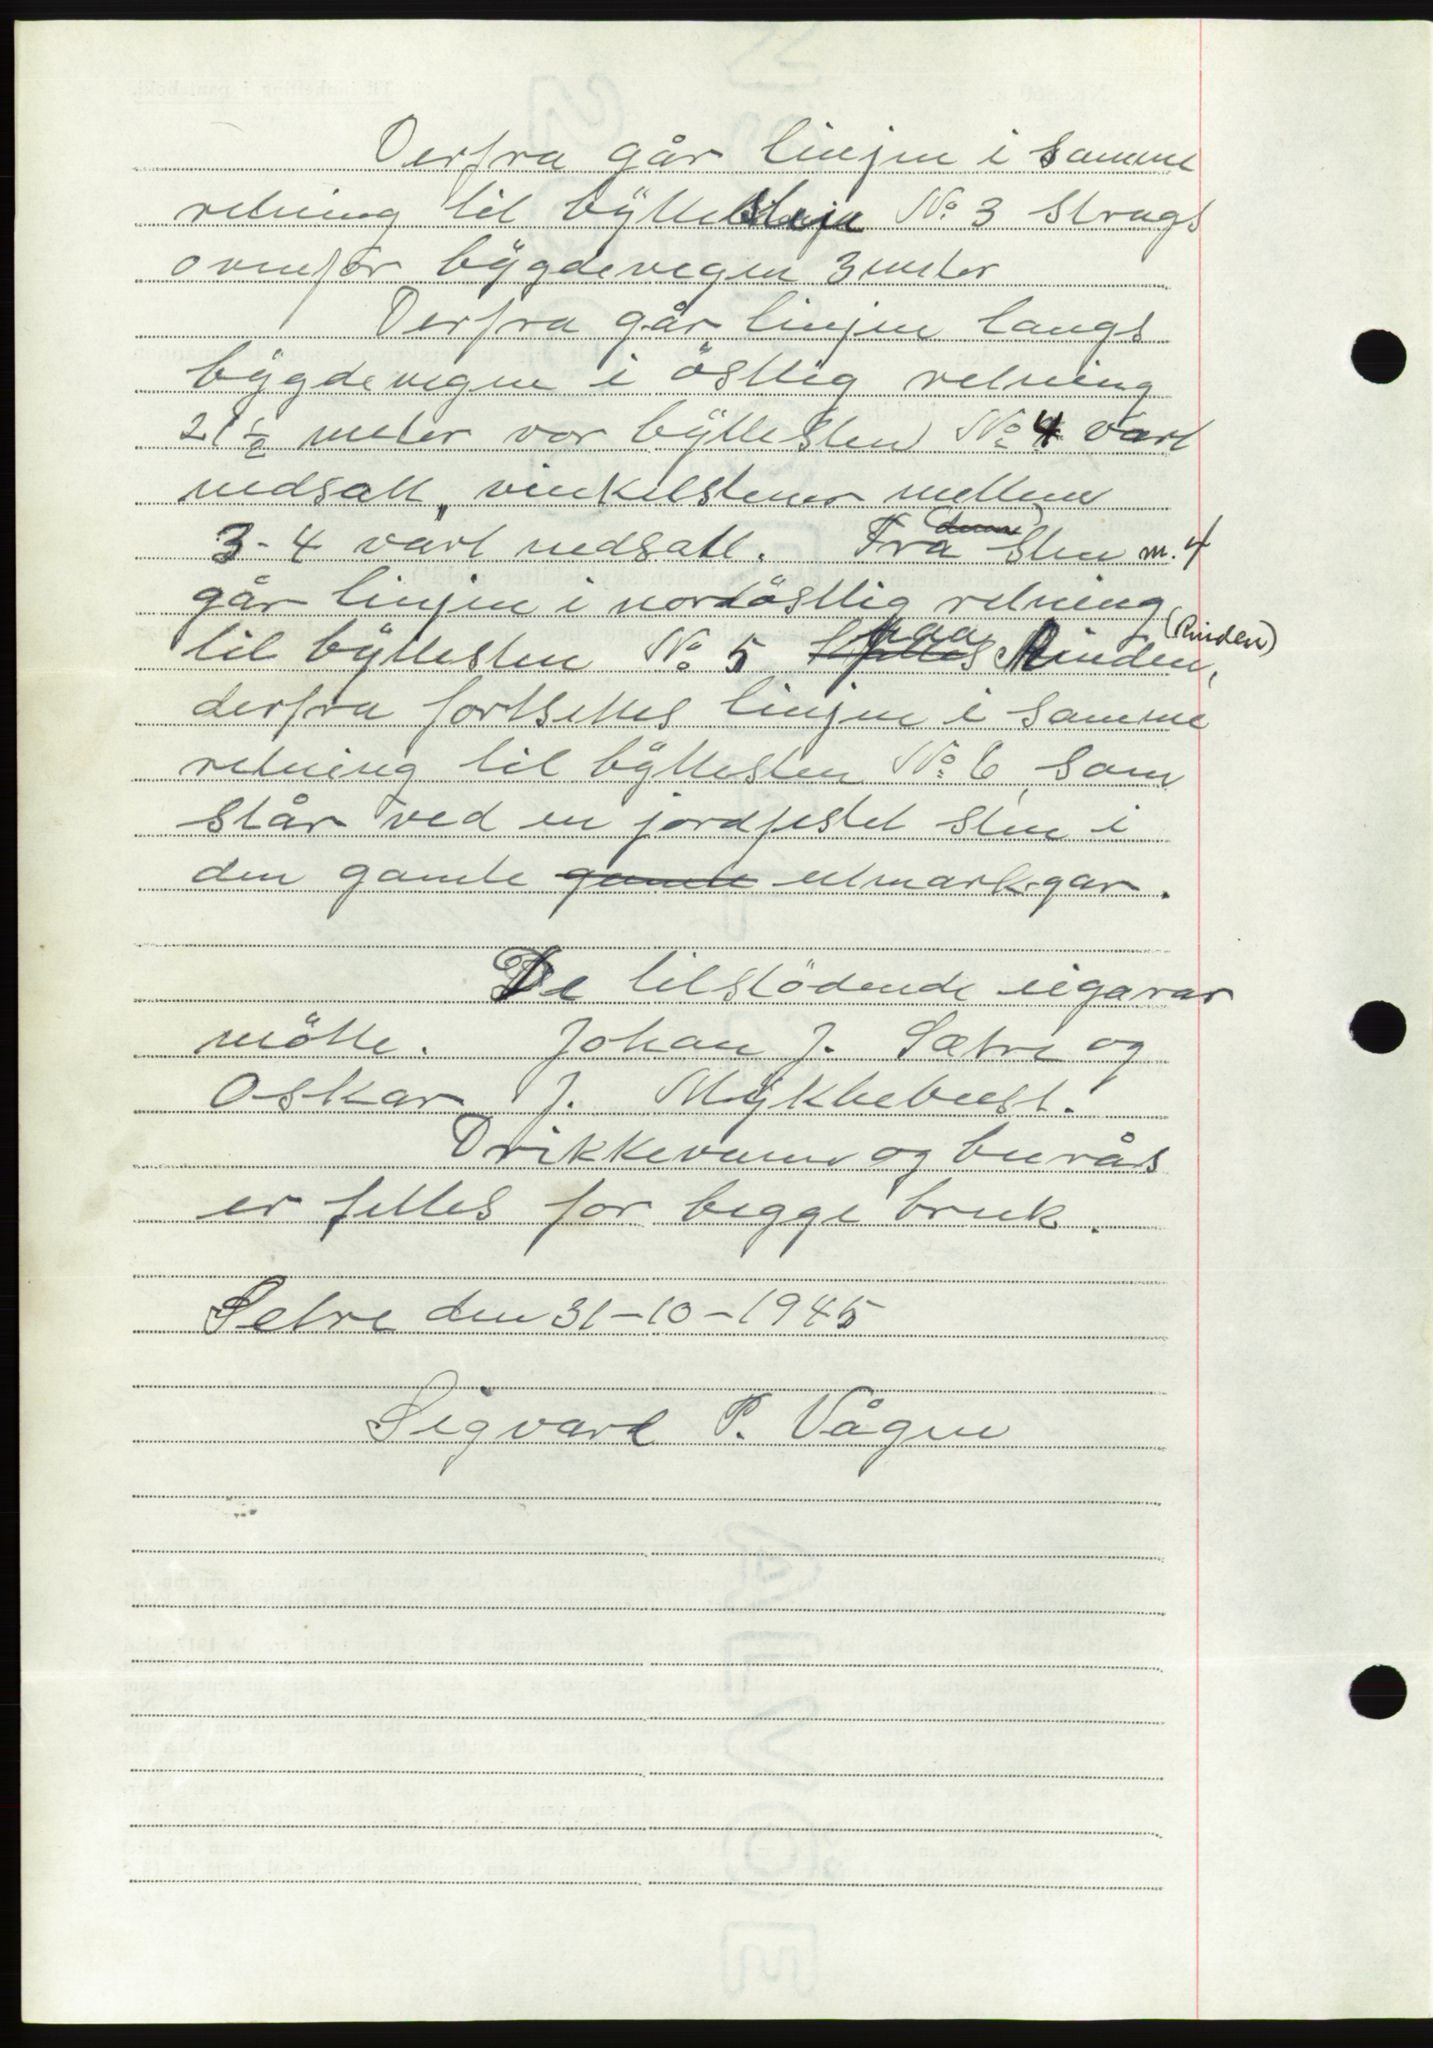 Derfra går linjen i samme
retning til byttestein No 3 strags
ovenfor bygdevegen 3 meter
Derfra går linjen langs
bygdevegen i östlig retning
21 1/2 meter vor byttesten No 4 vart
nedsatt, vinkelstener mellem
3-4 vart nedsatt. Fra sten nr. 4
går linjen i nordöstlig retning
til byttesten No 5 paa Rinden, (Rinden)
derfra fortsettes linjen i samme
retning til byttesten No 6, som
står ved en jordfestet sten i
den gamle gamle utmarksgar.
De tilstödende eigarar
mötte. Johan J. Sætre og
Oskar J. Myklebust.
Drikkevann og burås
er felles for begge bruk.
Setre den 31-10-1945
Sigvart P. Vågen